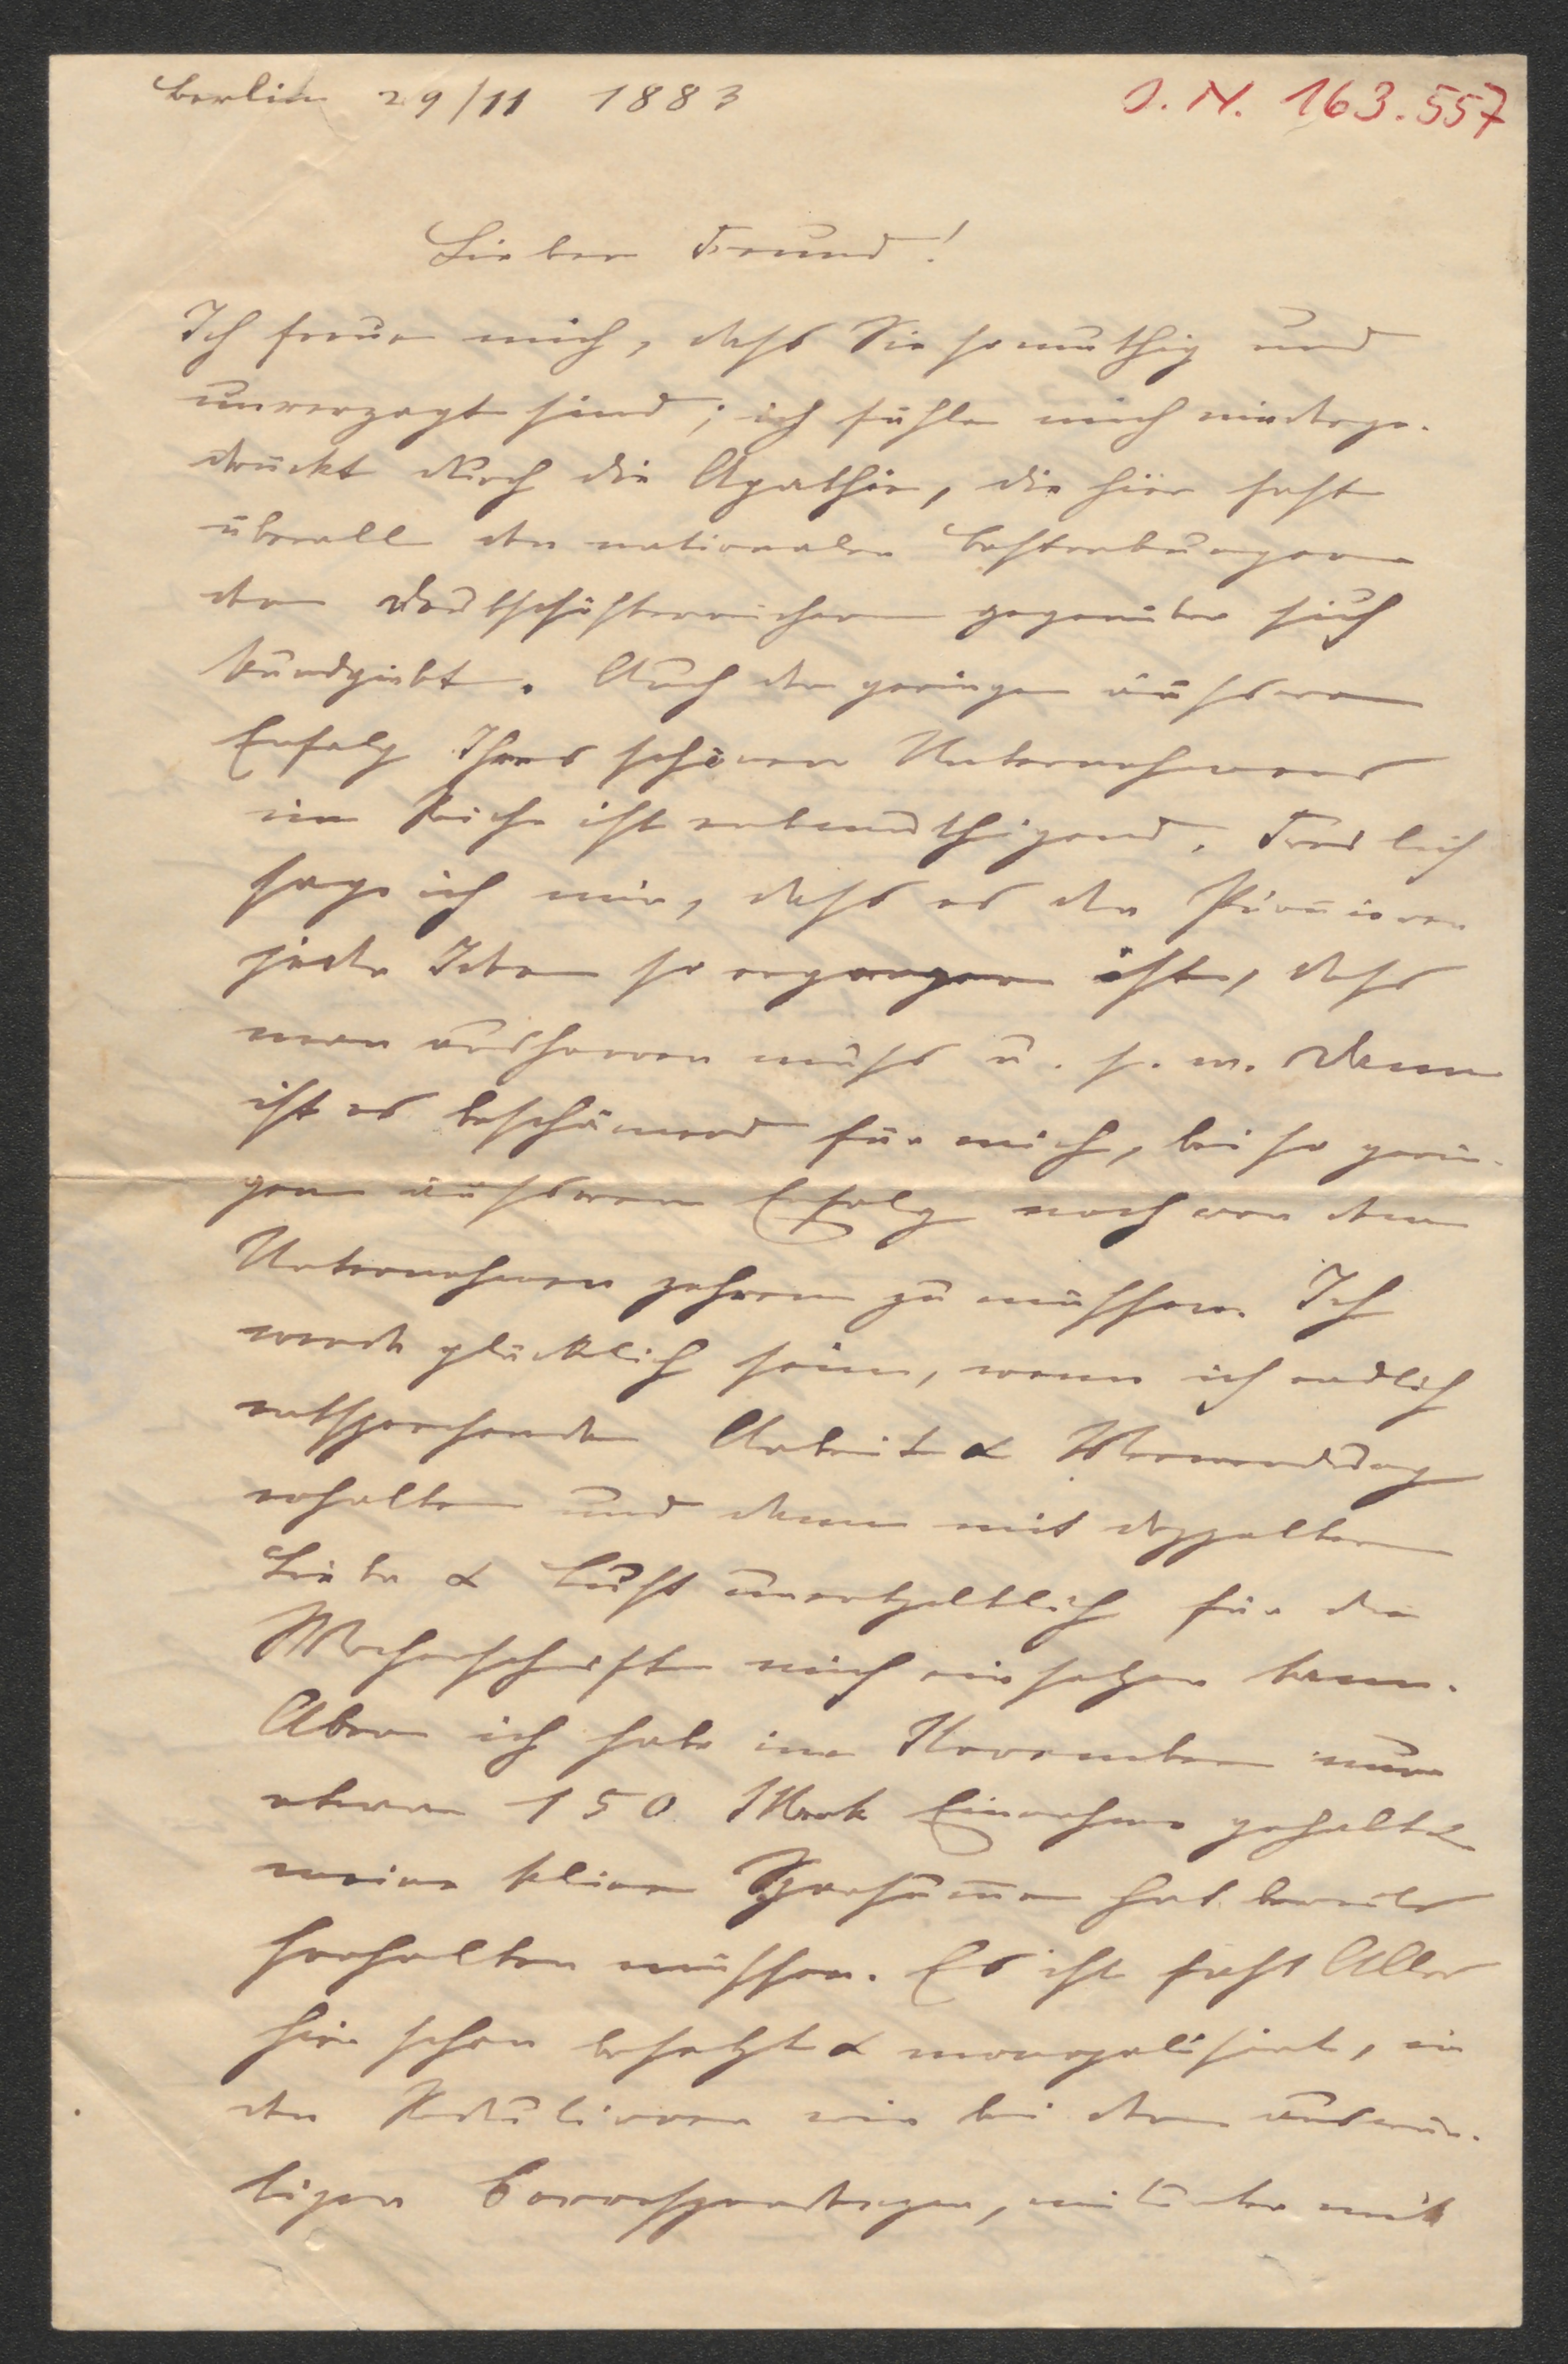 Berlin 29/11 1883
I. N. 163.557
Lieber Freund!
Ich freue mich, dass Sie so muthig und
unverzagt sind; ich fühle mich niederge-
drückt durch die Apathie, die hier fast
überall den nationalen Bestrebungen
der Deutschösterreicher gegenüber sich
kundgiebt. Auch der geringe äussere
Erfolg Ihres schönen Unternehmens
im Reiche ist entmuthigend. Freilich
sage ich mir, dass es den Pionieren
jeder Idee so ergangen ist, dass
man ausharren muss u. s. w. Dann
ist es beschämend für mich, bei so gerin-
gem äusseren Erfolg noch von dem
Unternehmen zehren zu müssen. Ich
werde glücklich sein, wenn ich endlich
entsprechende Arbeit & Verwendung
erhalten und dann mit doppelter
Liebe & Lust unentgeltlich für die
Wochenschrift mich einsetzen kann.
Aber ich habe im November nur
etwa 150 Mark Einnahme gehabt &
meine kleine Sparsumme hat bereits
herhalten müssen. Es ist fast Alles
hier schon besetzt & monopolisirt, in
den Redactionen wie bei den auswär-
tigen Correspondenzen, mitunter mit